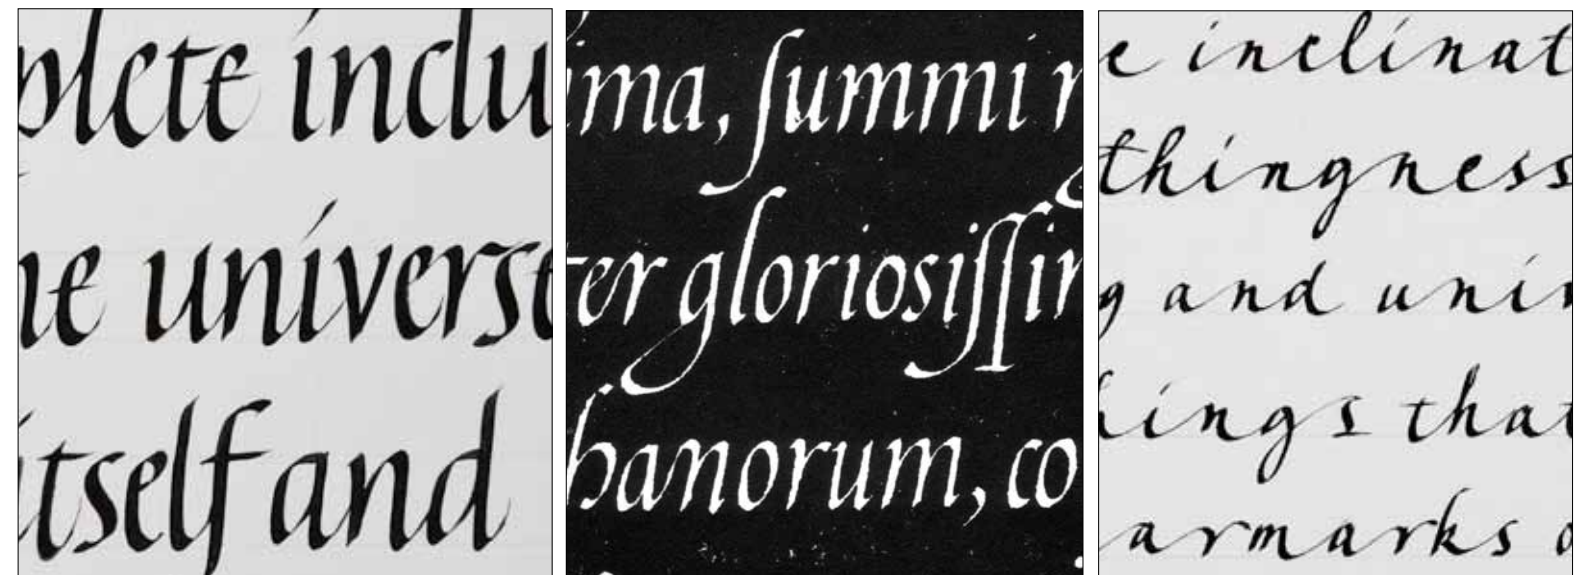 plete inclu
he universe
itself and
ima, ſummi n
ter glorioſiſſim
hanorum, co
e inclinat
thingness
g and unin
hings that
armarks o